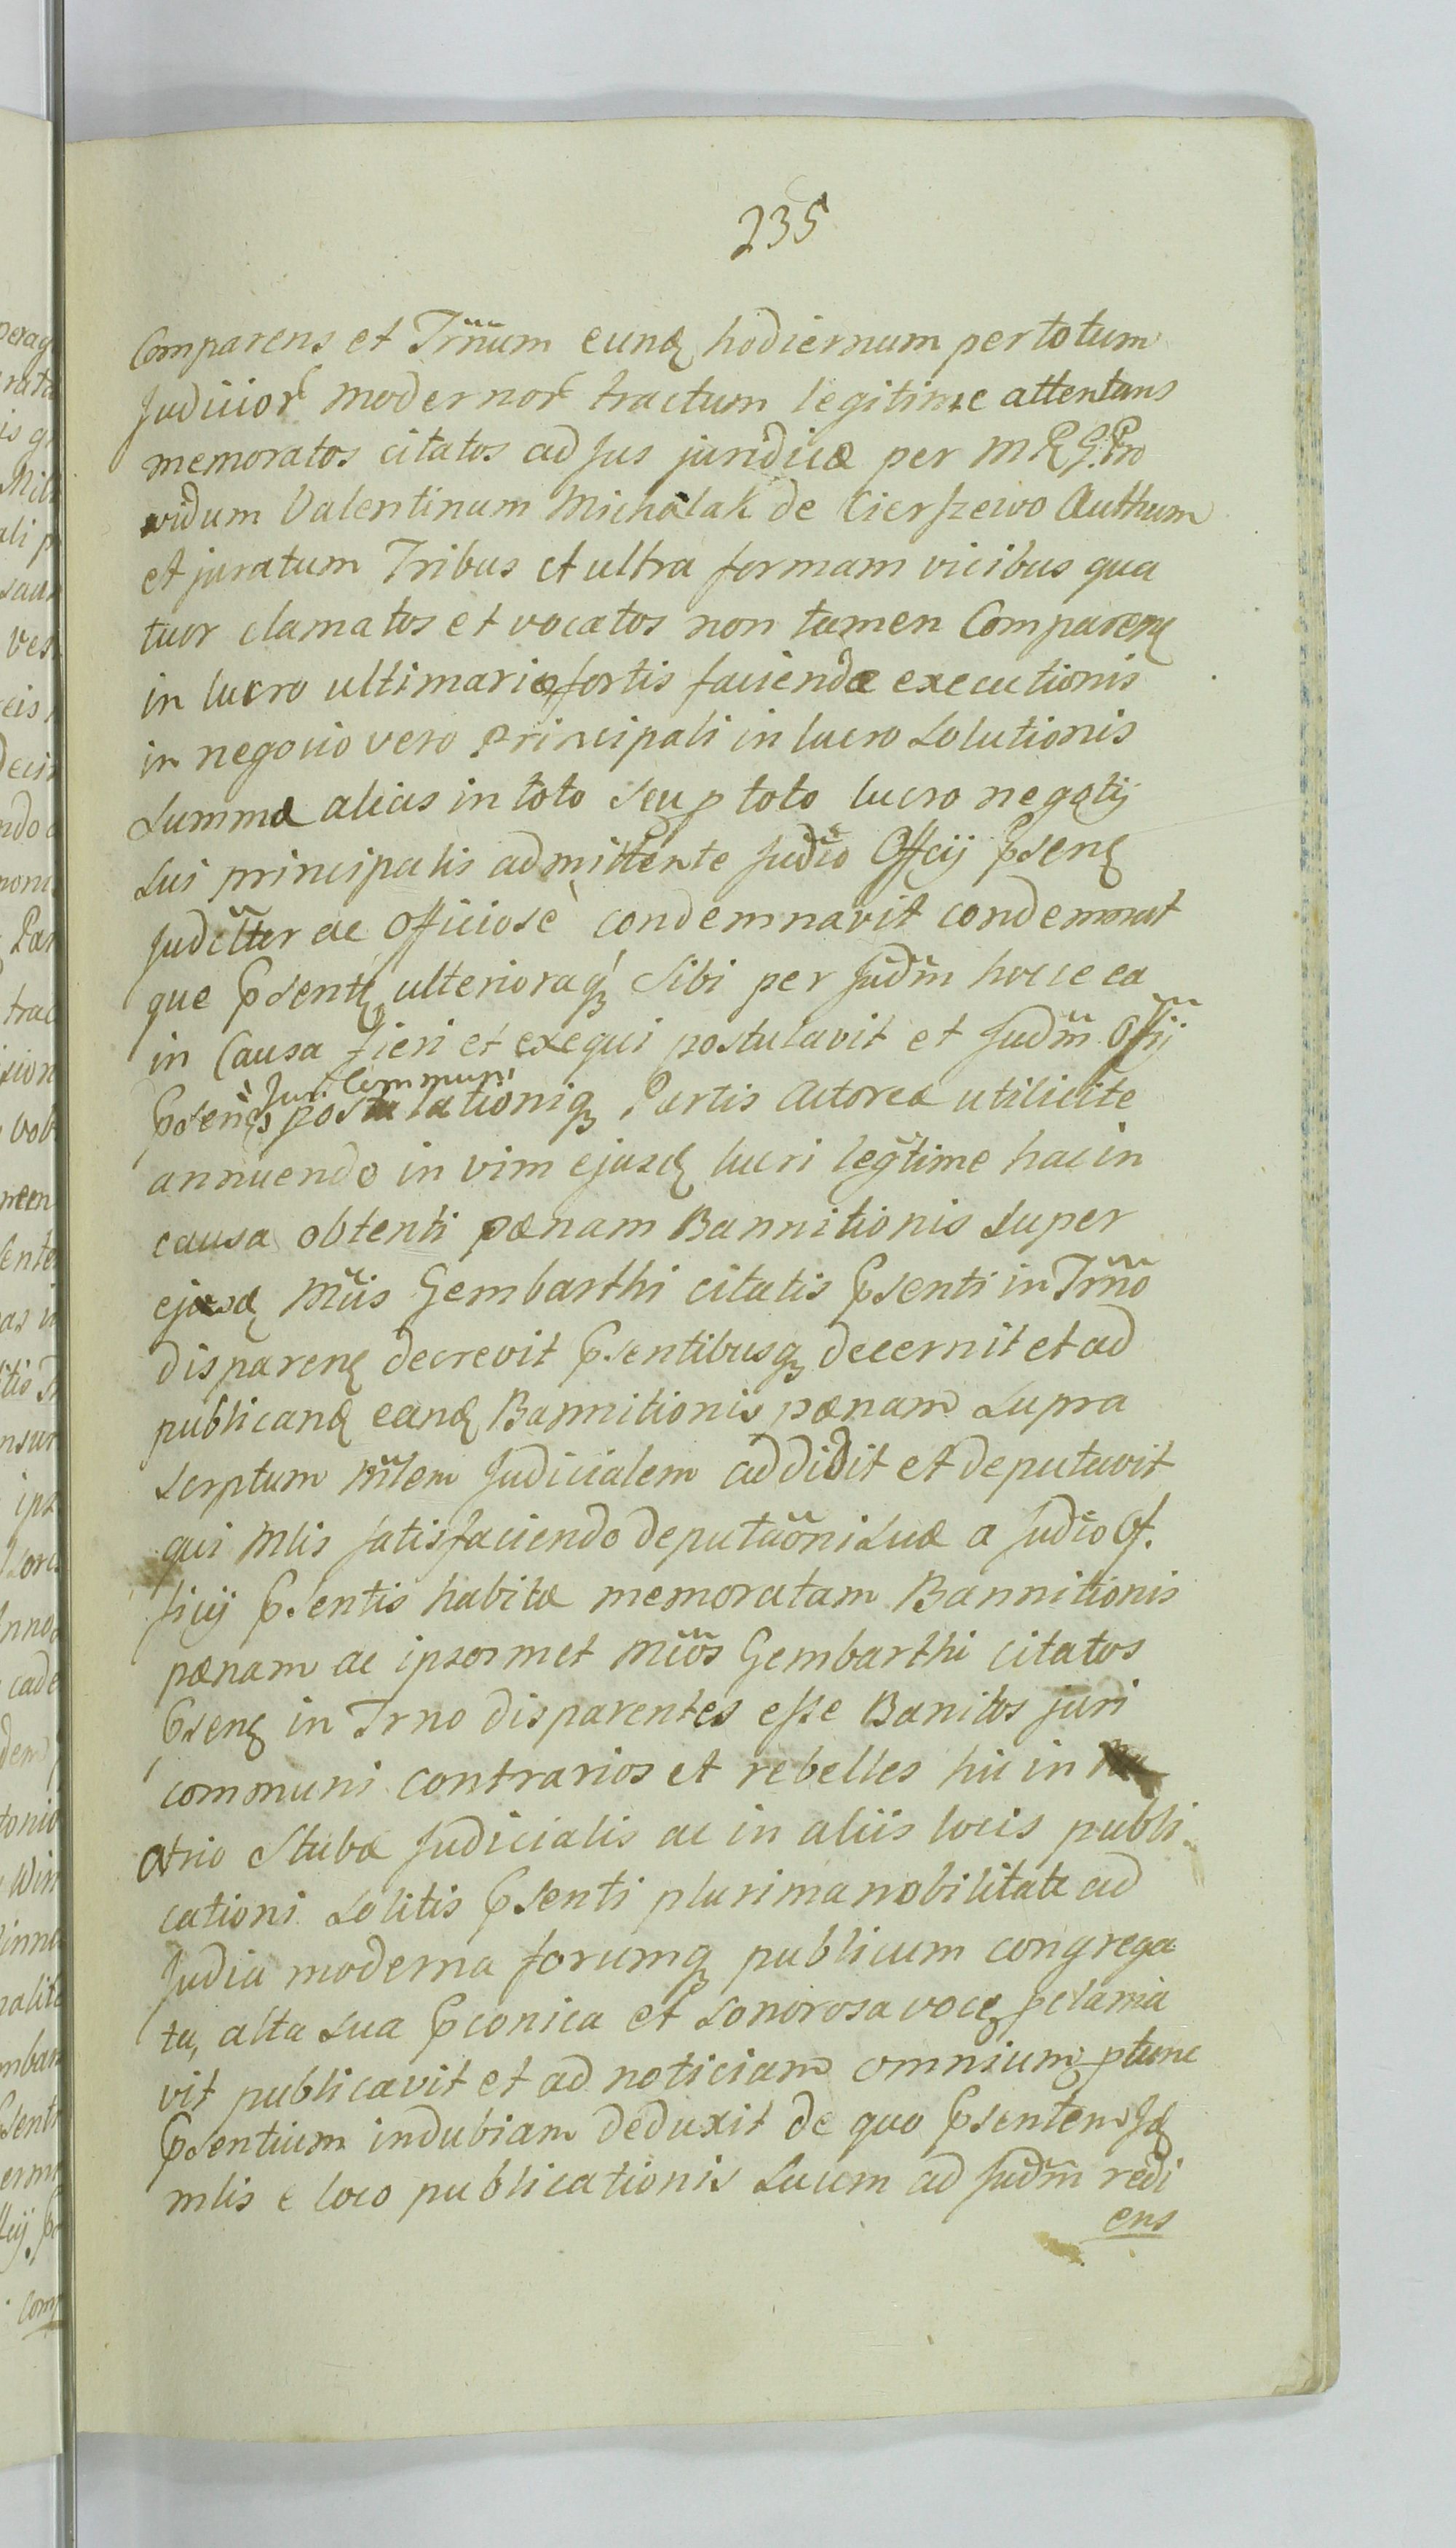 235
Comparens et Trnum eund hodiernum per totum
Judicior modernor tractum legitime attentans
memoratos citatos ad Jus juridicæ per M R G. Pro
vidum Valentinum Michalak de Cierszewo Authum
et juratum Tribus et ultra formam vicibus qua
tuor clamatos et vocatos non tamen Comparen
in lucro ultimariæ fortis faciendæ executionis
in negocio vero principali in lucro Solutionis
Summæ alias in toto seu p toto lucro negotij
Sui principalis admittente Judio Officij Psen
Judciter ac Officiosè condemnavit condemnat
que Psent ulterioraq Sibi per Judm hocce ea
in Causa fieri et exequi postulavit et Judm Offij
Juri Communi
Psens postulationiq Partis Actoreæ utilicite
annuendo in vim ejusd lucri legtime hac in
causa obtenti pænam Bannitionis Super
ejusd Mcis Gembarthi citatis Psenti in Trno
disparen decrevit Psentibusq decernit et ad
publicand eand Bannitionis pænam Supra
scrptum Mlem Judicialem addidit et deputavit
qui Mlis satisfaciendo deputaoni Suæ a Judio Of.
ficij Psentis habitæ memoratam Bannitionis
pænam ac ipsosmet Mcos Gembarthi citatos
Psen in Trno disparentes esse Banitos juri
communi contrarios et rebelles hic in
Atrio Stubæ Judicialis ac in aliis locis publi
cationi Solitis Psenti plurima nobilitate ad
Judia moderna forumq publicum congrega
ta, alta Sua Pconica et Sonorosa voce pclama
vit publicavit et ad noticiam omnium ptunc
Psentium indubiam deduxit de quo Psentem Id
mlis e loco publicationis Suum ad Judm redi
ens